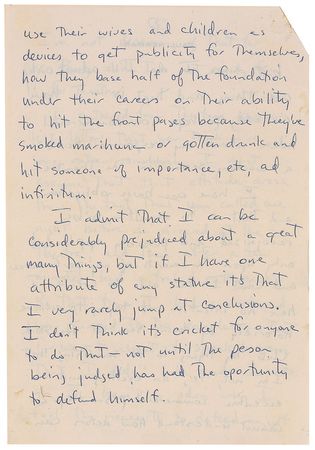 use Their wives and children as
devices to get publicity for Themselves,
how they base half of The foundation
under their careers on Their ability
to hit the front pages because They've
smoked marihuana or gotten drunk and
hit someone of importance, etc, ad
infinitum.
I admit That I can be
considerably prejudiced about a great
many Things, but if I have one
attribute of any stature it's That
I very rarely jump at conclusions.
I don't Think it's cricket for anyone
to do That — not until The person
being judged has had The oportunity
to defend himself.